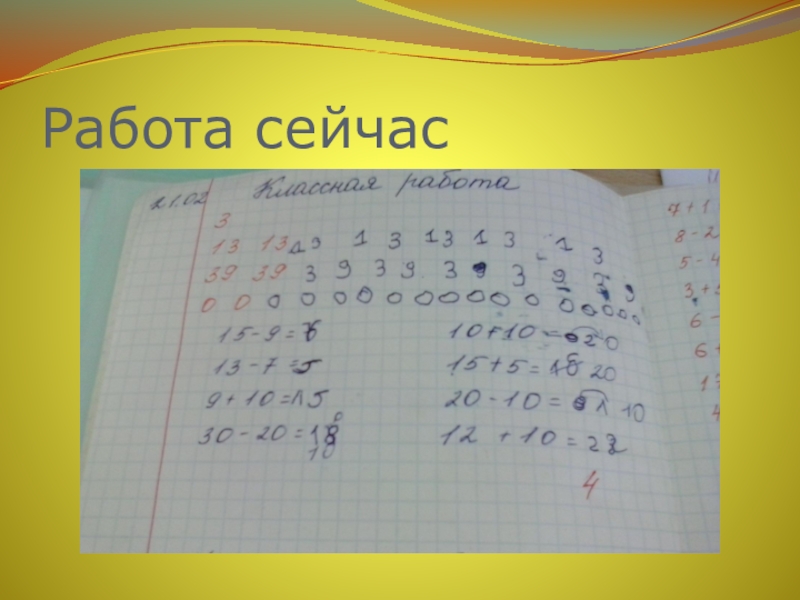 Работа сейчас
21.02 Классная работа
3
13 13 13 1 3 13 1 3 1 3
39 39 3 9 3 9 3 9 3 9 3 9
0 0 0 0 0 0 0 0 0 0 0 0 0 0 0 0 0
15-9=6 10+10= 20
13-7=5 15+5= 20
9+10=15 20-10= 10
30-20= 10 12 +10=22
4
7+1
8-2
5-4
3+
6-
6+